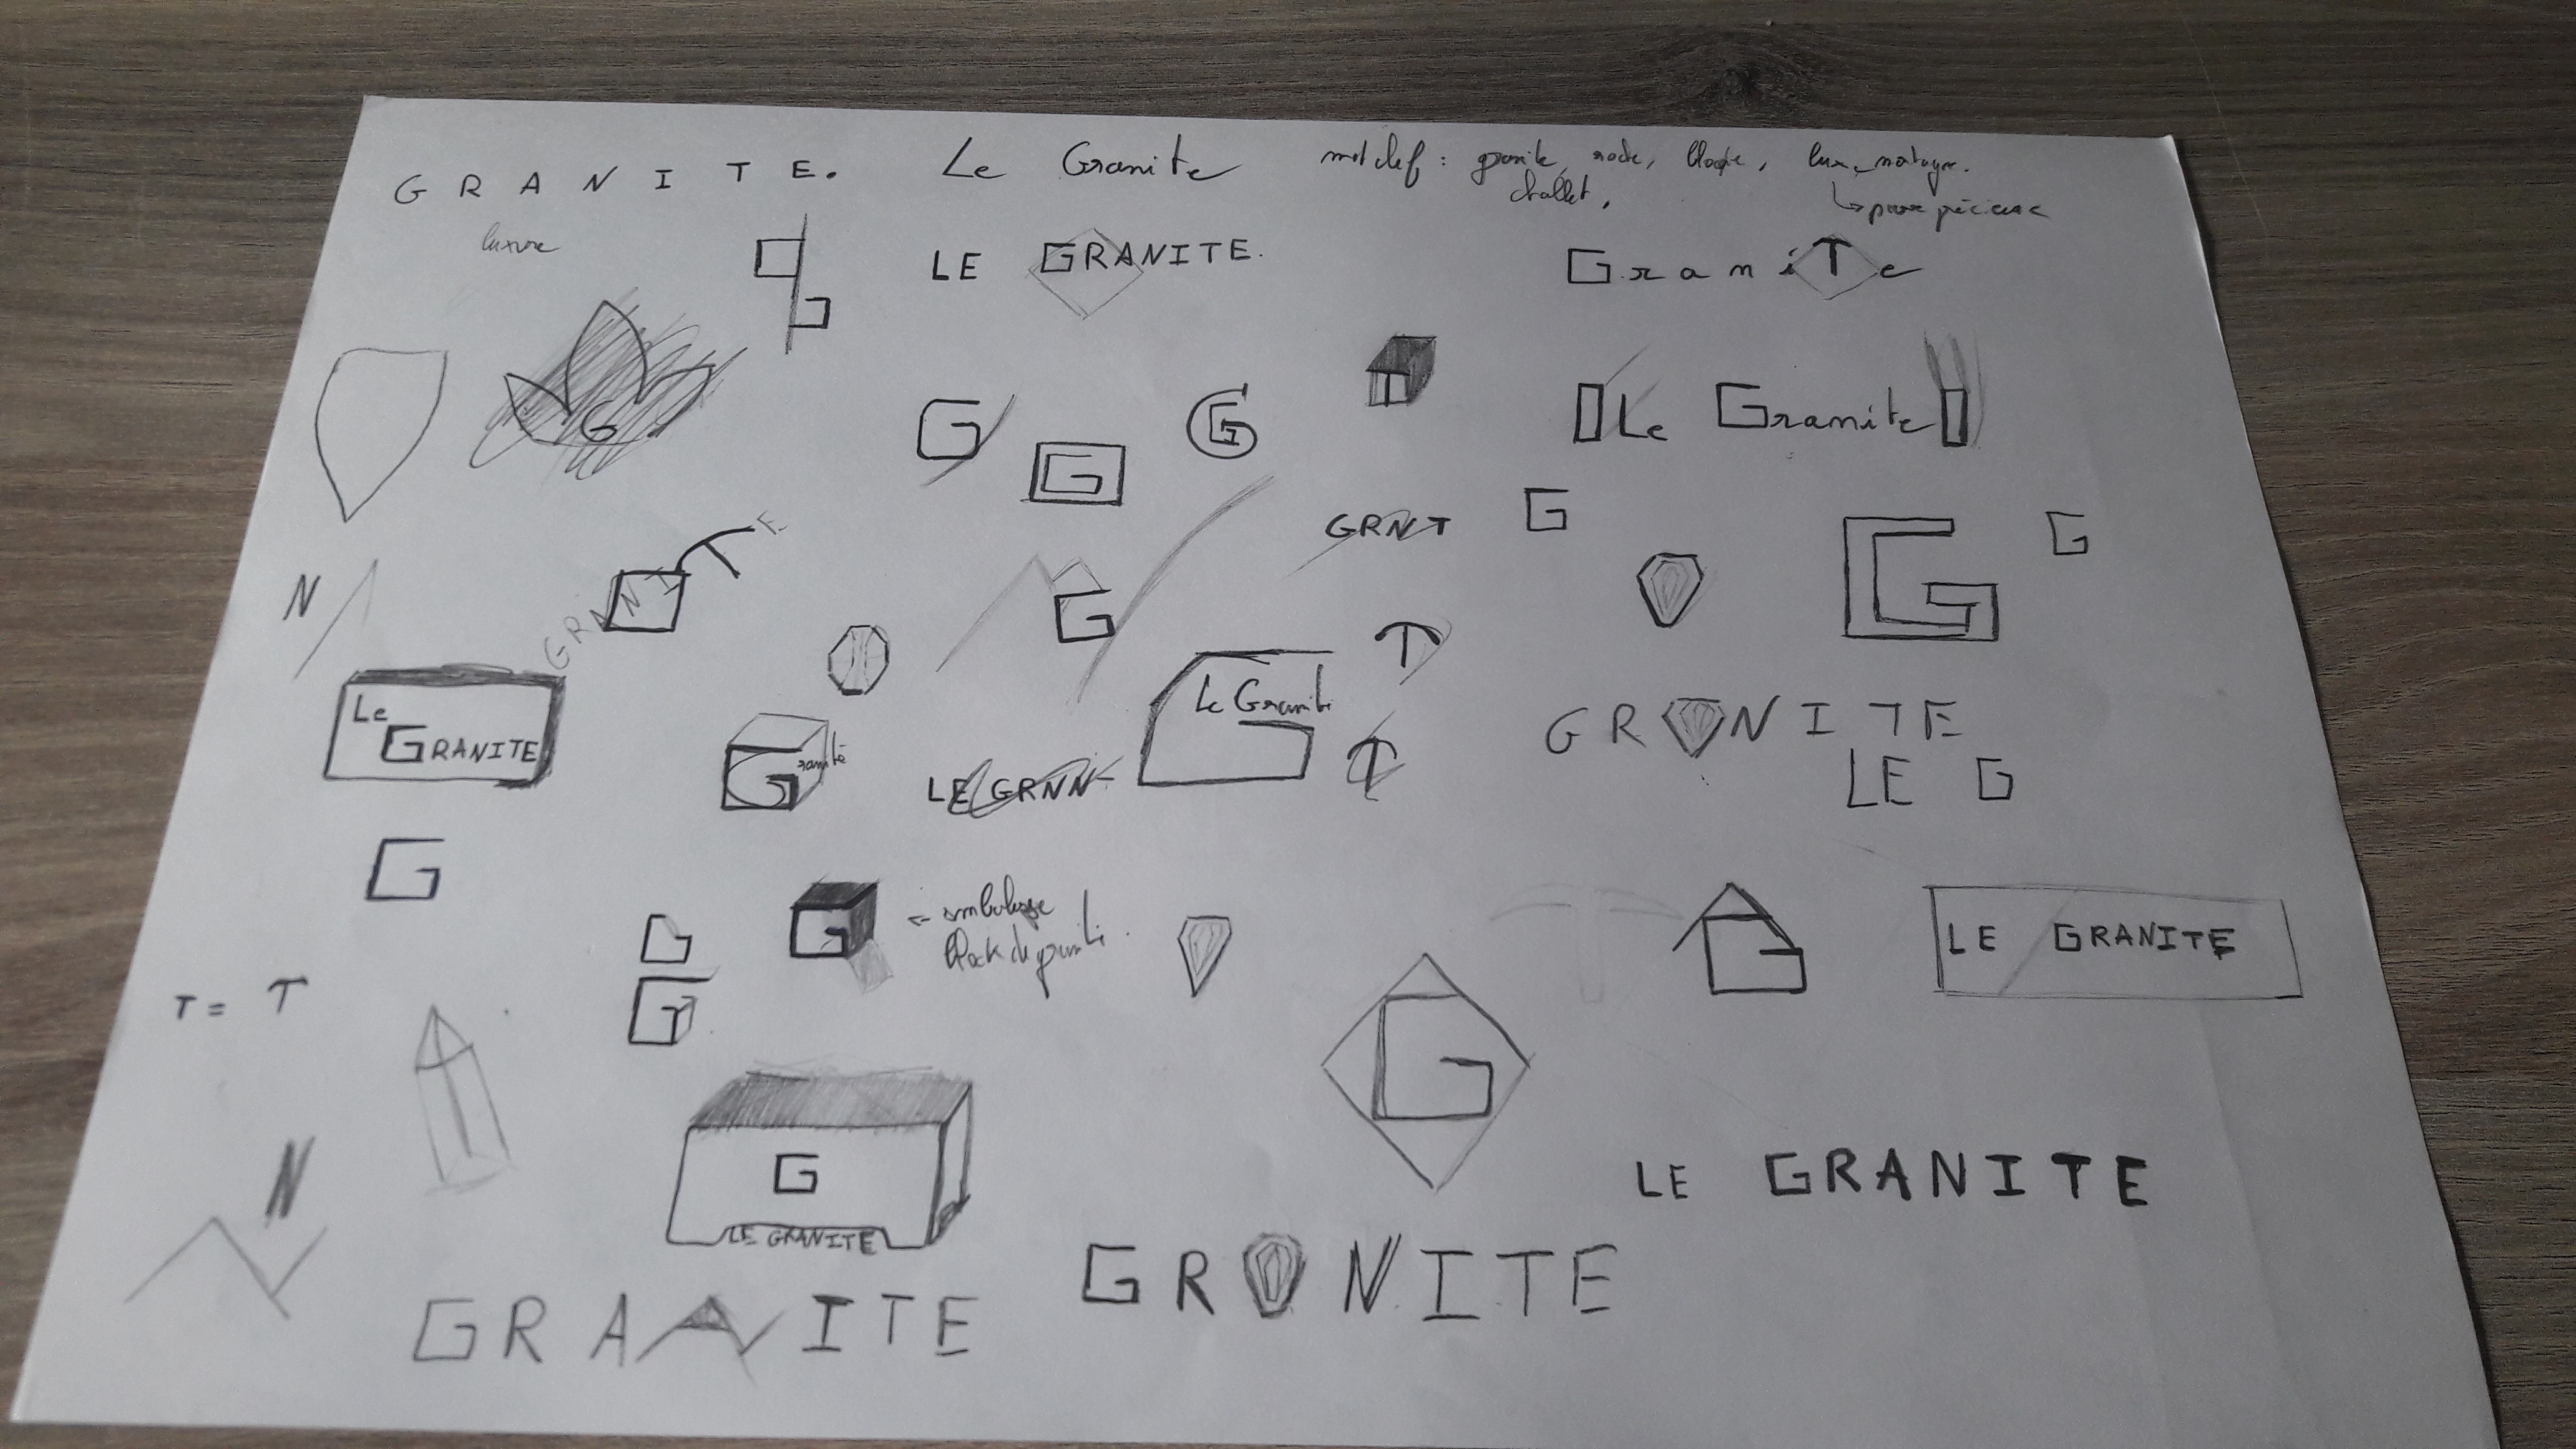 GRANITE.
Le Granite
mot clef : granite, roche, block, luxe, montagne.
challet,
↳ pierre précieuse
luxure
G
G
LE GRANITE.
GraniTe
G
G
G
G
Le Granite
GRNT
G
G
G
N
GRANITE
G
T
Le
GRANITE
Granite
Le Granite
T
GR NITE
LE G
LE GRNN
G
G
G
G
← symbolique
block de granite.
G
LE GRANITE
T = T
G
N
G
LE GRANITE
LE GRANITE
GR NITE
GRANITE